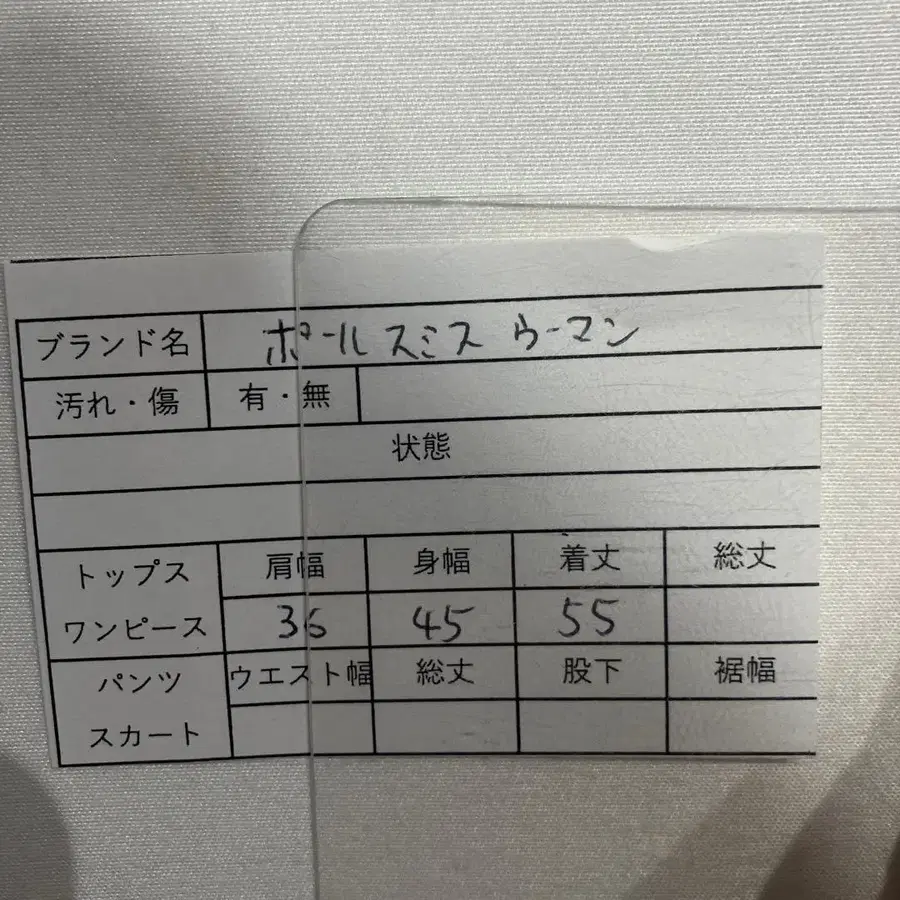 ブランド名 ポールスミス ウーマン
汚れ・傷 有・無
状態
トップス 肩幅 身幅 着丈 総丈
ワンピース 36 45 55
パンツ ウエスト幅 総丈 股下 裾幅
スカート